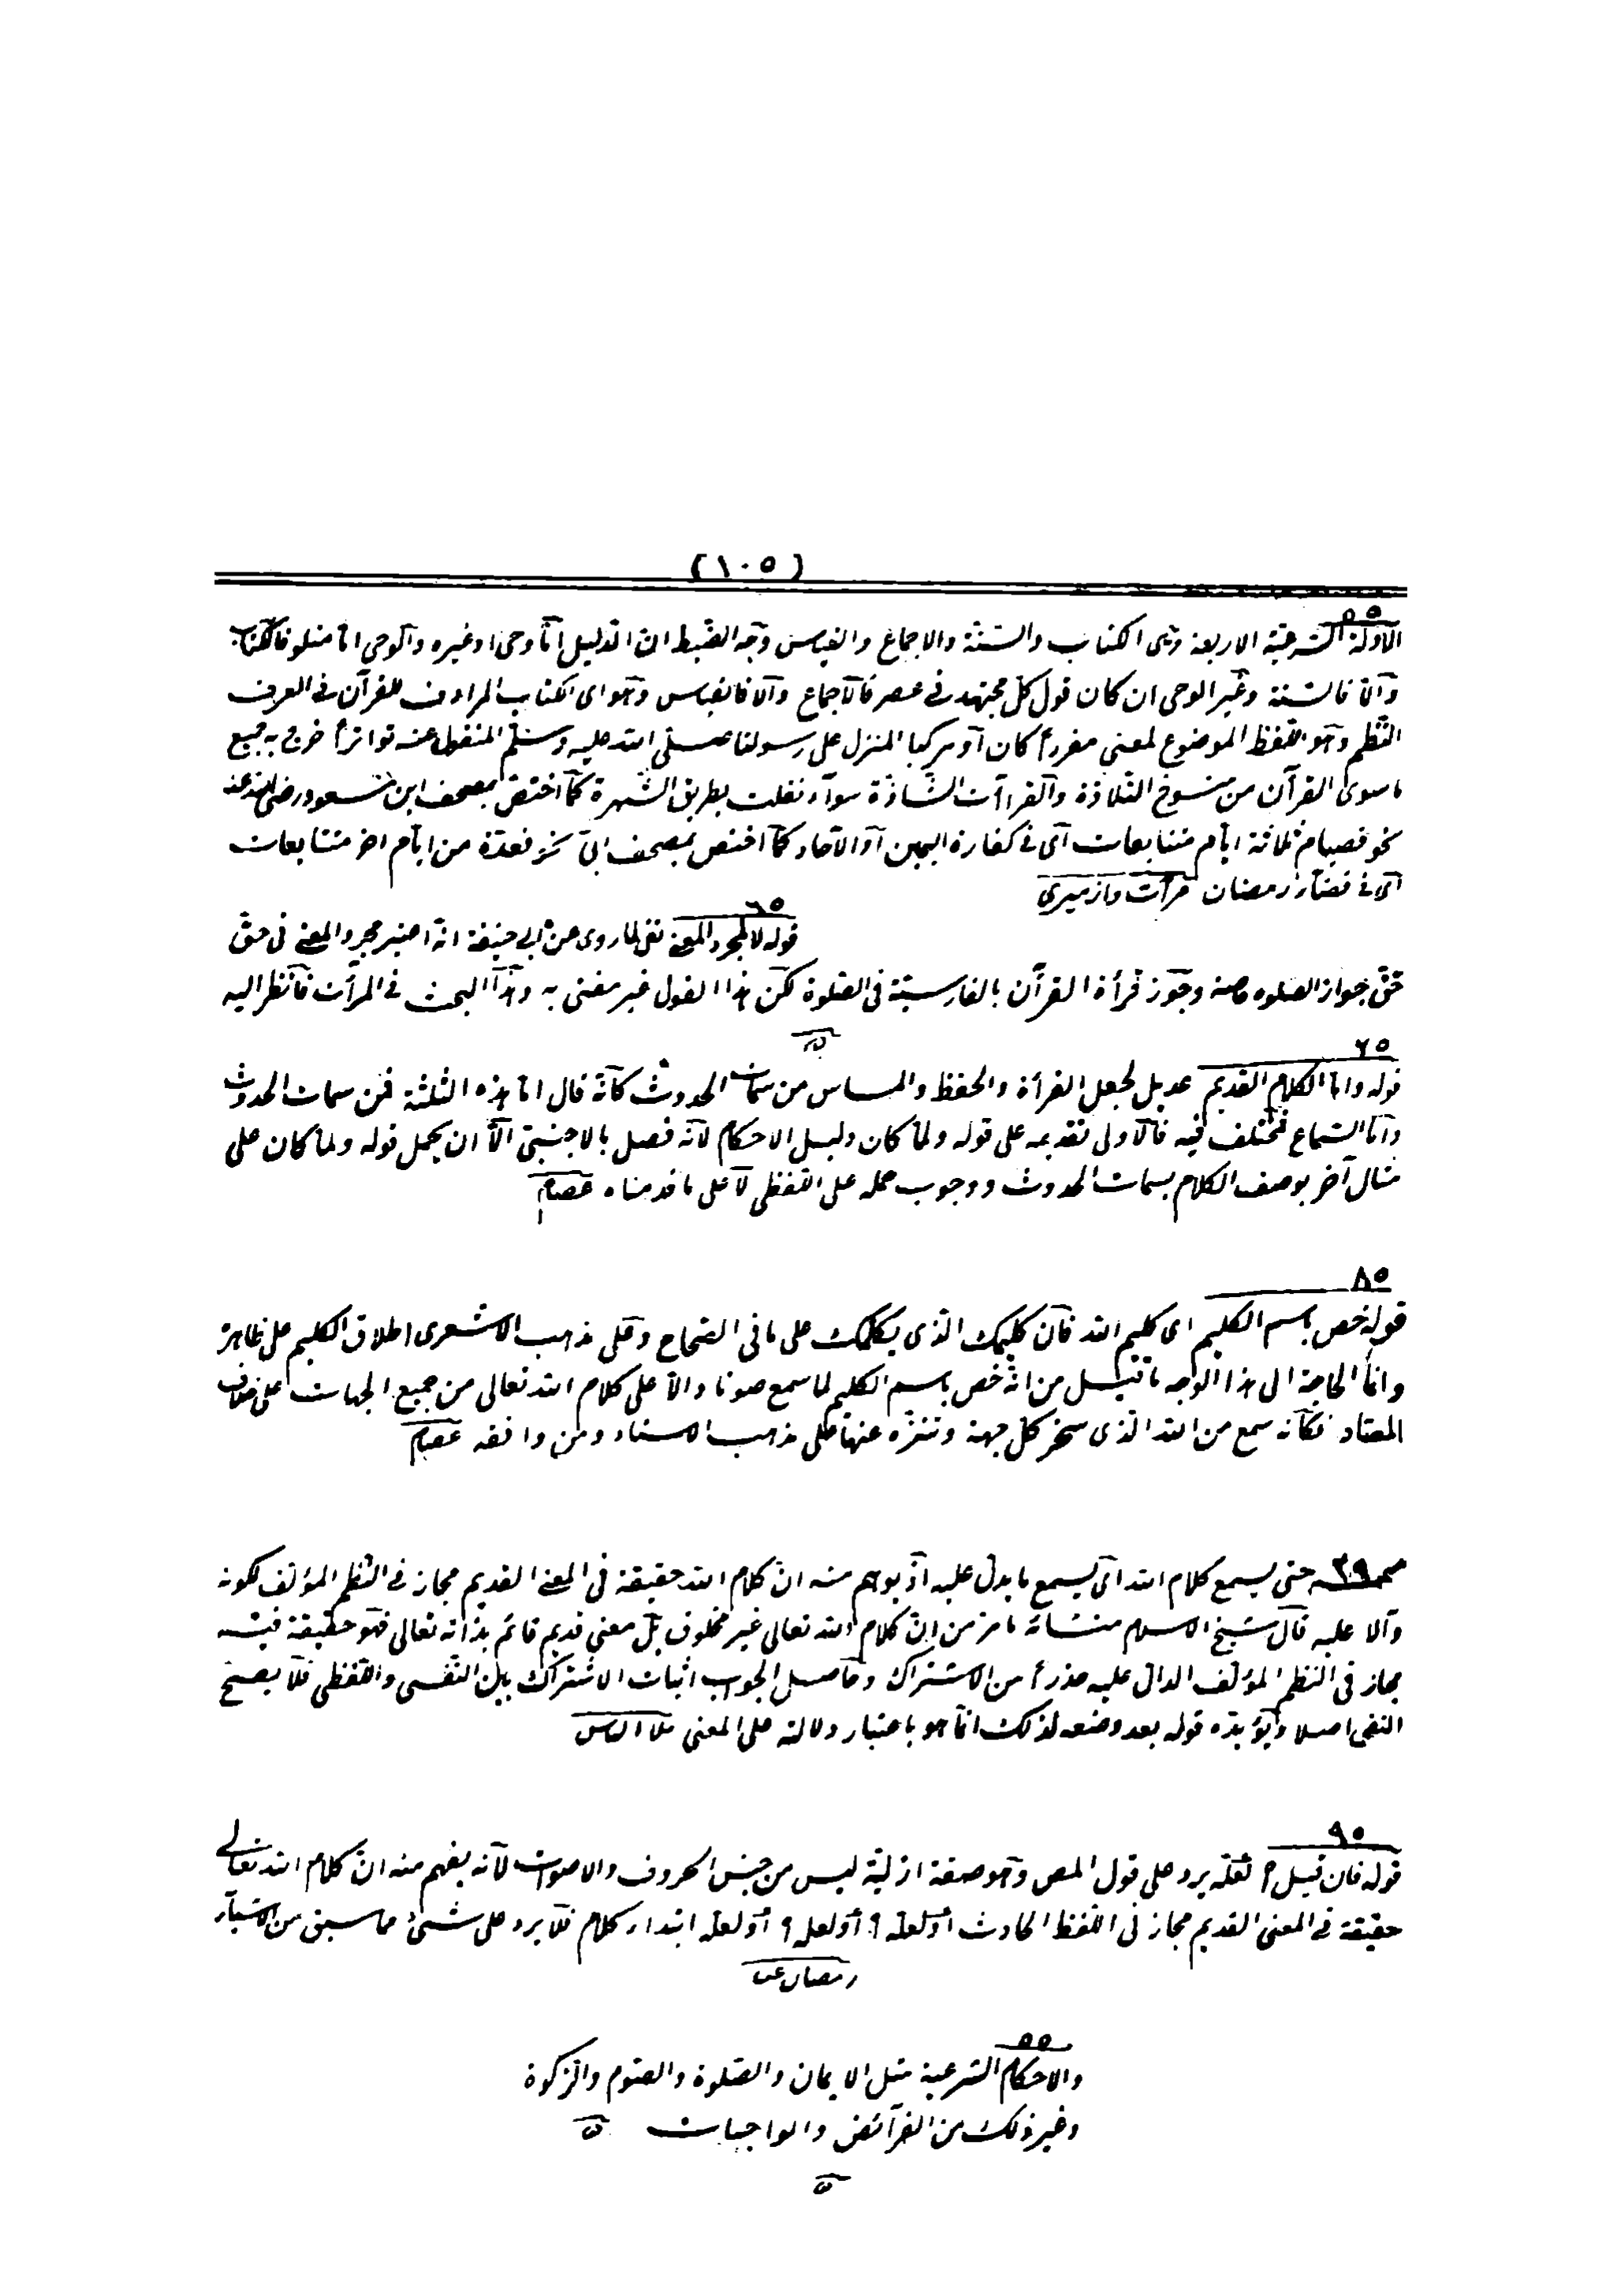 (١٠٥)
٥٥
الادلة الشرعية الاربعة وهى الكتاب والسنة والاجماع والقياس وجه الضبط ان الدليل اما وحى او غيره والوحى اما متلو فالكتاب
والا فالسنة وغير الوحى ان كان قول كل مجتهد فى عصر فالاجماع والا فالقياس وهو اى الكتاب المرادف للقرآن فى العرف
النظم وهو اللفظ الموضوع لمعنى مفردا كان او مركبا المنزل على رسولنا صلى الله عليه وسلم المنقول عنه تواترا خرج به جميع
ما سوى القرآن من منسوخ التلاوة والقراآت الشاذة سوآء نقلت بطريق الشهرة كما اختص بمصحف ابن مسعود رضى الله عنه
نحو فصيام ثلاثة ايام متتابعات اى فى كفارة اليمين او الآحاد كما اختص بمصحف ابى نحو فعدة من ايام اخر متتابعات
اى فى قضآء رمضان مرآت وازميرى
٦٥
قوله لا لمجرد المعنى نفى لما روى عن ابى حنيفة انه اعتبر مجرد المعنى فى حق
حق جواز الصلوه خاصة وجوز قرأة القرآن بالفارسية فى الصلوة لكن هذا القول غير مفتى به وهذا البحث فى المرآت فانظر اليه
٧٥
قوله واما الكلام القديم عديل لجعل القرأة والحفظ والمساس من سمات الحدوث كانه قال اما هذه الثلثة فمن سمات الحدوث
واما السماع فمختلف فيه فالاولى تقديمه على قوله ولما كان دليل الاحكام لانه فصل بالاجنبى الا ان يجعل قوله ولما كان على
مثال آخر بوصف الكلام بسمات الحدوث ووجوب حمله على اللفظى لا على ما قدمناه عصام
٨٥
قوله خص باسم الكليم اى كليم الله فان كليمك الذى يكلمك على ما فى الصحاح وعلى مذهب الاشعرى اطلاق الكليم على ظاهرة
وانما الحاجة الى هذا الوجه ما قيل من انه خص باسم الكليم لما سمع صوتا دالا على كلام الله تعالى من جميع الجهات على خلاف
المعتاد فكانه سمع من الله الذى سخر كل جهة وتنزه عنها على مذهب الاستاد ومن وافقه عصام
حتى يسمع كلام الله اى يسمع ما يدل عليه اذ يوهم منه ان كلام الله حقيقة فى المعنى القديم مجاز فى النظم المؤلف لكونه
دالا عليه قال شيخ الاسلام منشائه ما مر من ان كلام الله تعالى غير مخلوق بل معنى قديم قائم بذاته تعالى فهو حقيقة فيه
مجاز فى النظم المؤلف الدال عليه حذرا من الاشتراك وحاصل الجواب اثبات الاشتراك بين النفسى واللفظى فلا يصح
النفى اصلا ويؤيده قوله بعد وضعه لذلك انما هو باعتبار دلالته على المعنى ملا الياس
٩٥
قوله فان قيل لعله يرد على قول المص وهو صفة ازلية ليس من جنس الحروف والاصوات لانه يفهم منه ان كلام الله تعالى
حقيقة فى المعنى القديم مجاز فى اللفظ الحادث او لعله ؟ او لعله ؟ او لعله ابتداء كلام فلا يرد على شىء مما سبق من الاشيآء
رمضان
٥٥
والاحكام الشرعية مثل الايمان والصلوة والصوم والزكوة
وغير ذلك من الفرآئض والواجبات